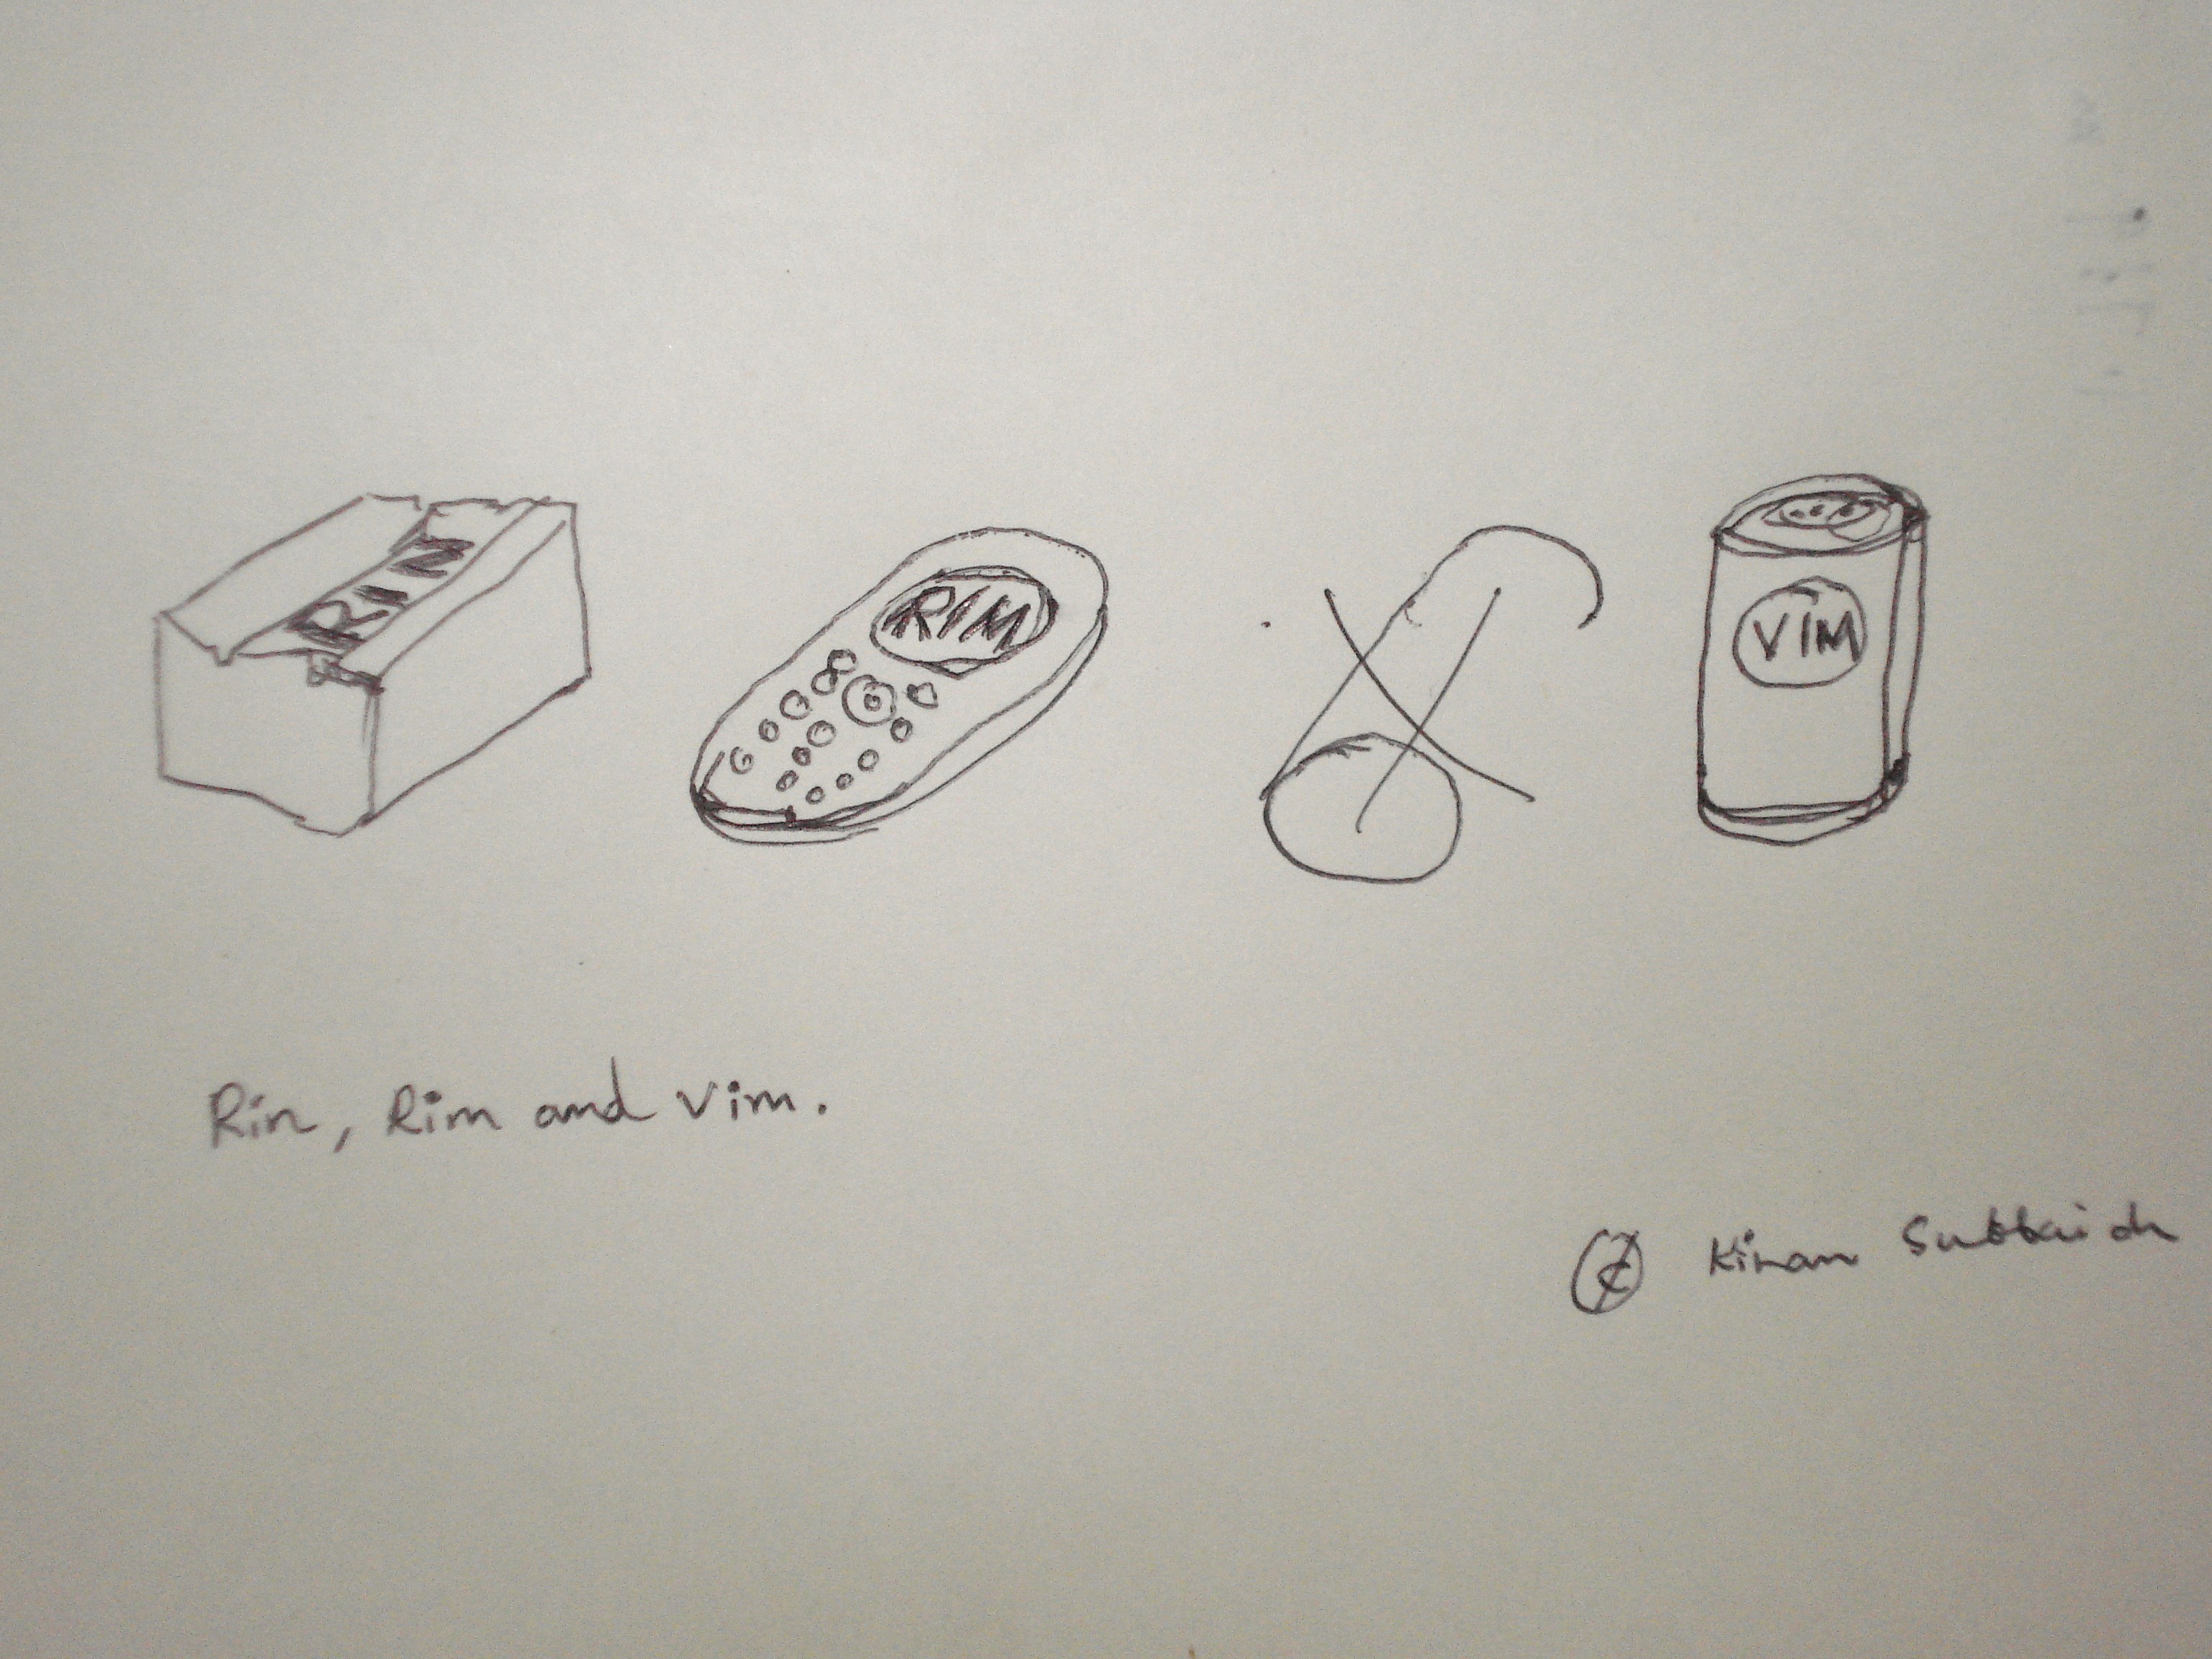 RIN
RIM
VIM
Rin, Rim and Vim.
Kiran Subbaiah